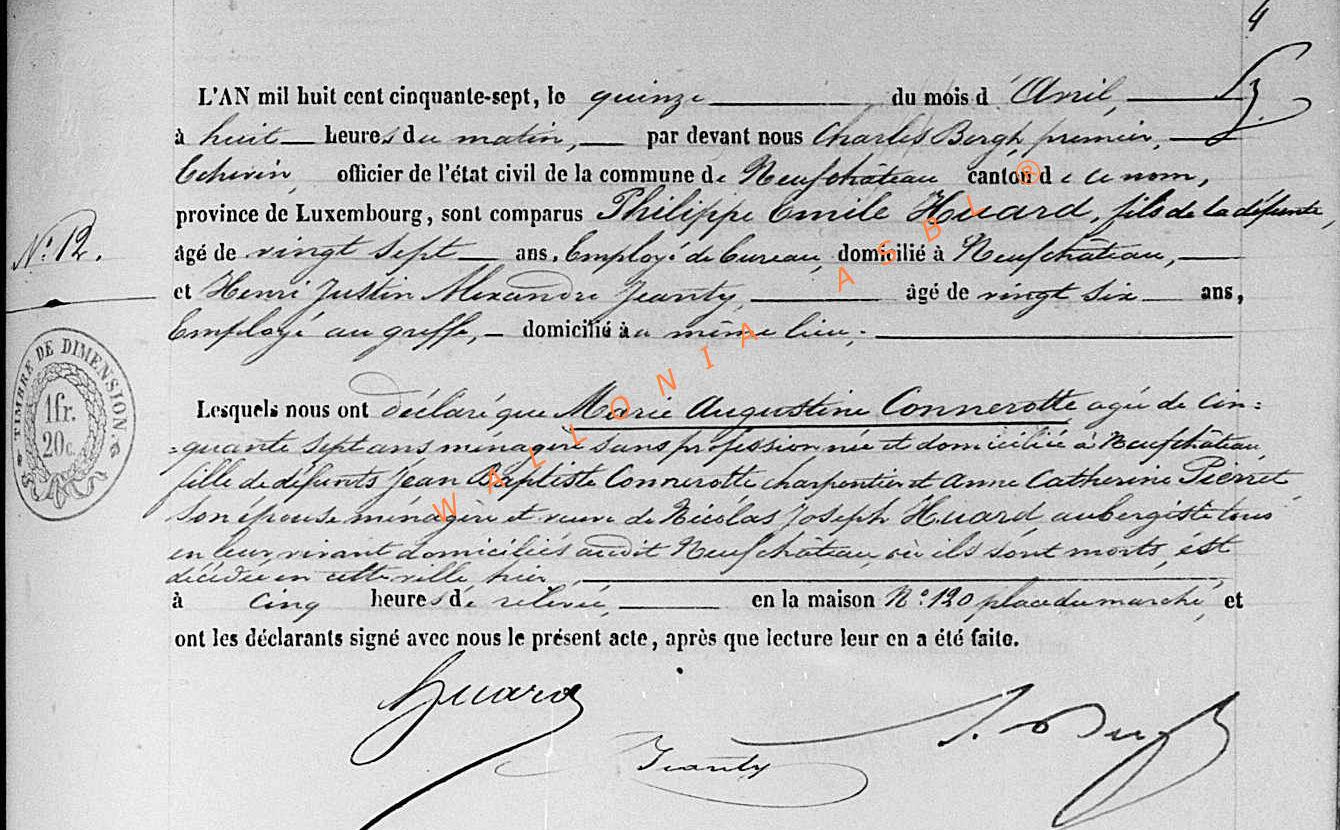 4
L'AN mil huit cent cinquante-sept, le quinze du mois d'Avril,
à huit heures du matin, par devant nous Charles Bergh, premier,
Echevin, officier de l'état civil de la commune de Neufchâteau canton de ce nom,
province de Luxembourg, sont comparus Philippe Emile Huard, fils de la défunte,
N.° 12.
âgé de vingt sept ans, Employé de bureau, domicilié à Neufchâteau,
et Henri Justin Alexandre Jeanty, âgé de vingt six ans,
Employé au greffe, domicilié au même lieu;
TIMBRE DE DIMENSION
1fr.
20c.
Lesquels nous ont déclaré que Marie Augustine Connerotte agée de cin=
=quante sept ans ménagère sans profession née et domiciliée à Neufchâteau,
fille de défunts Jean Baptiste Connerotte charpentier et Anne Catherine Pierret
son épouse ménagère et veuve de Nicolas Joseph Huard aubergiste tous
en leur vivant domiciliés audit Neufchâteau, où ils sont morts, est
décédée en cette ville hier,
à cinq heures de relevée, en la maison N.° 120 place du marché, et
ont les déclarants signé avec nous le présent acte, après que lecture leur en a été faite.
Huard
Jeanty
WALLONIA ASBL ®